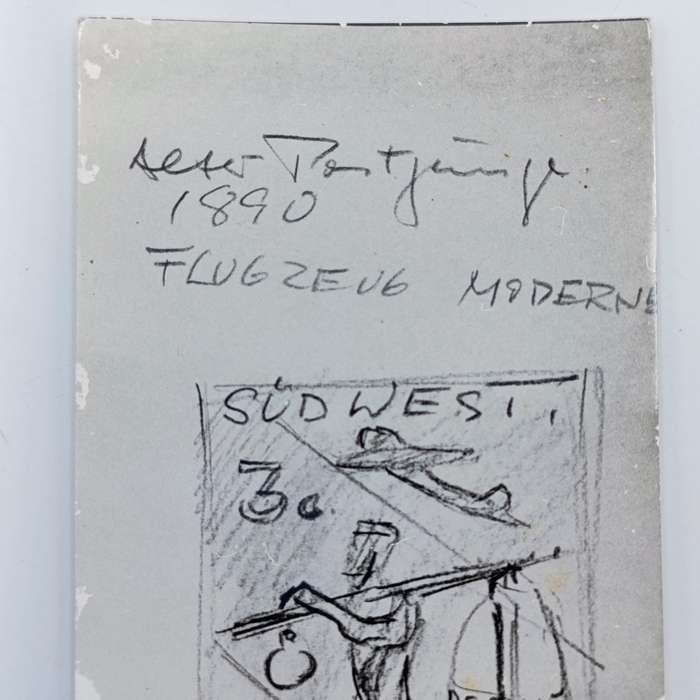 alter Postjunge
1890
FLUGZEUG MODERNE
SÜDWEST..
3c.